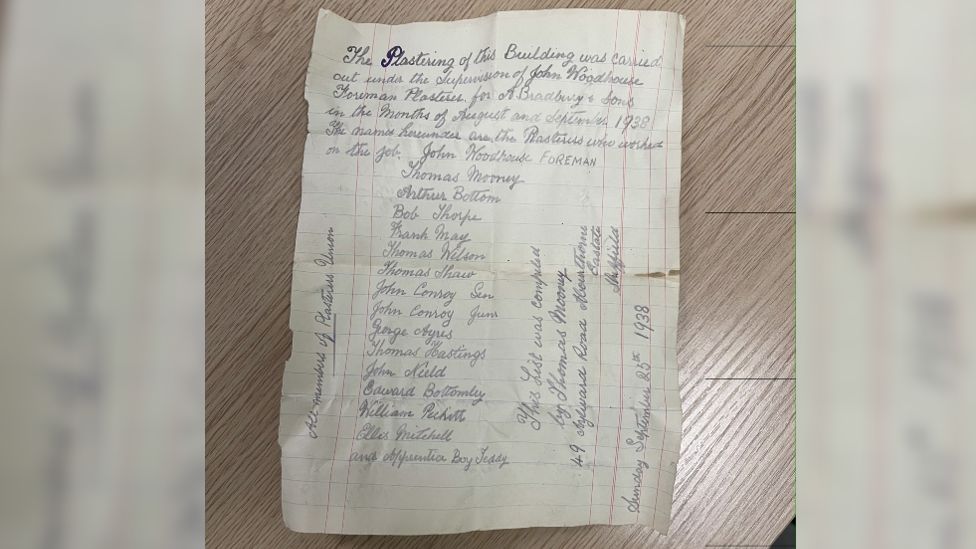 The Plastering of this Building was carried
out under the supervision of John Woodhouse
Foreman Plasterer for A Bradbury & Sons
in the Months of August and September 1938
The names hereunder are the Plasterers who worked
on the job. John Woodhouse FOREMAN
Thomas Mooney
Arthur Bottom
Bob Thorpe
Frank May
Thomas Wilson
Thomas Shaw
John Conroy Sen
John Conroy Junr
George Ayres
Thomas Hastings
John Nield
Edward Bottomley
William Peckitt
Ellis Mitchell
and Apprentice Boy Teddy
All members of Plasterers Union
This List was compiled
by Thomas Mooney
49 Aylward Road
Estate
Sheffield
Sunday September 25th 1938